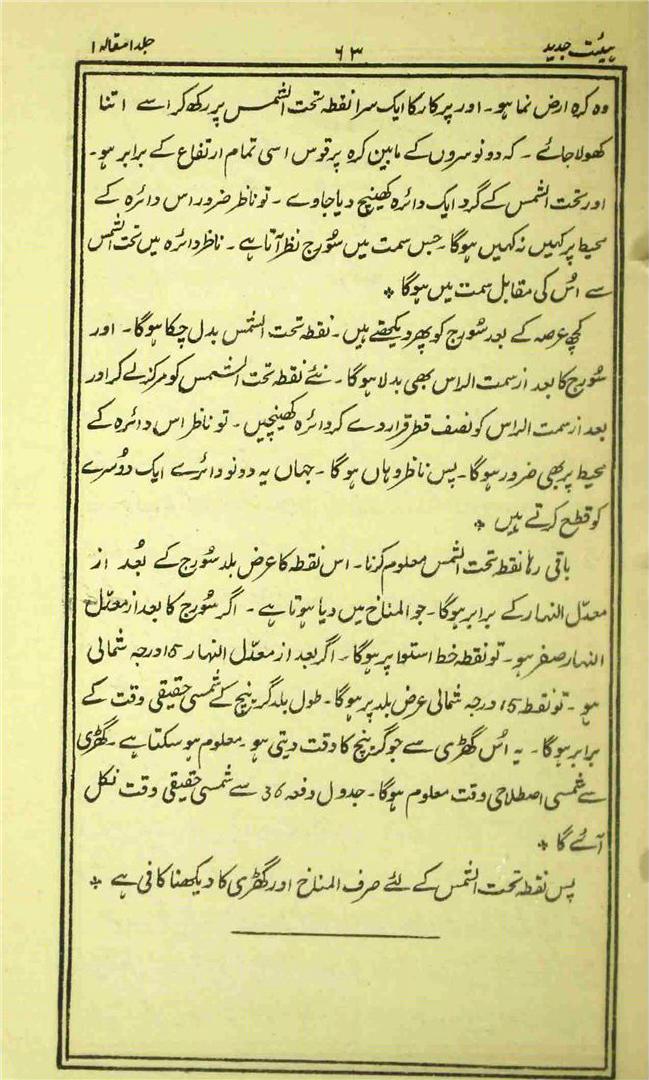 ہیئت جدید ۶۳ جلد ا مقالہ ا
وہ کرہ ارض نما ہو۔ اور پرکار کا ایک سرا نقطہ تحت الشمس پر رکھ کر اسے اتنا
کھولا جائے ۔ کہ دونو سروں کے مابین کرہ پر قوس اسی تمام ارتفاع کے برابر ہو۔
اور تحت الشمس کے گرد ایک دائرہ کھینچ دیا جاوے ۔ تو ناظر ضرور اس دائرہ کے
محیط پر کہیں نہ کہیں ہوگا ۔ جس سمت میں سُورج نظر آتا ہے ۔ ناظر دائرہ میں تحت الشمس
سے اُس کی مقابل سمت میں ہوگا *
کچھ عرصہ کے بعد سُورج کو پھر دیکھتے ہیں ۔ نقطہ تحت الشمس بدل چکا ہوگا ۔ اور
سُورج کا بعد از سمت الراس بھی بدلا ہوگا ۔ نئے نقطہ تحت الشمس کو مرکز لے کر اور
بعد از سمت الراس کو نصف قطر قرار دے کر دائرہ کھینچیں ۔ تو ناظر اس دائرہ کے
محیط پر بھی ضرور ہوگا ۔ پس ناظر وہاں ہوگا ۔ جہاں یہ دونو دائرے ایک دُوسرے
کو قطع کرتے ہیں *
باقی رہا نقطہ تحت الشمس معلوم کرنا ۔ اس نقطہ کا عرض بلد سُورج کے بُعد از
معدّل النہار کے برابر ہوگا ۔ جو المناخ میں دیا ہوتا ہے ۔ اگر سُورج کا بعد از معدّل
النہار صفر ہو ۔ تو نقطہ خط استوا پر ہوگا ۔ اگر بعد از معدّل النہار 15 درجہ شمالی
ہو ۔ تو نقطہ 15 درجہ شمالی عرض بلد پر ہوگا ۔ طول بلد گرینچ کے شمسی حقیقی وقت کے
برابر ہوگا ۔ یہ اُس گھڑی سے جو گرینچ کا وقت دیتی ہو ۔ معلوم ہو سکتا ہے ۔ گھڑی
سے شمسی اصطلاحی وقت معلوم ہوگا ۔ جدول دفعہ 36 سے شمسی حقیقی وقت نکل
آئے گا *
پس نقطہ تحت الشمس کے لئے صرف المناخ اور گھڑی کا دیکھنا کافی ہے *